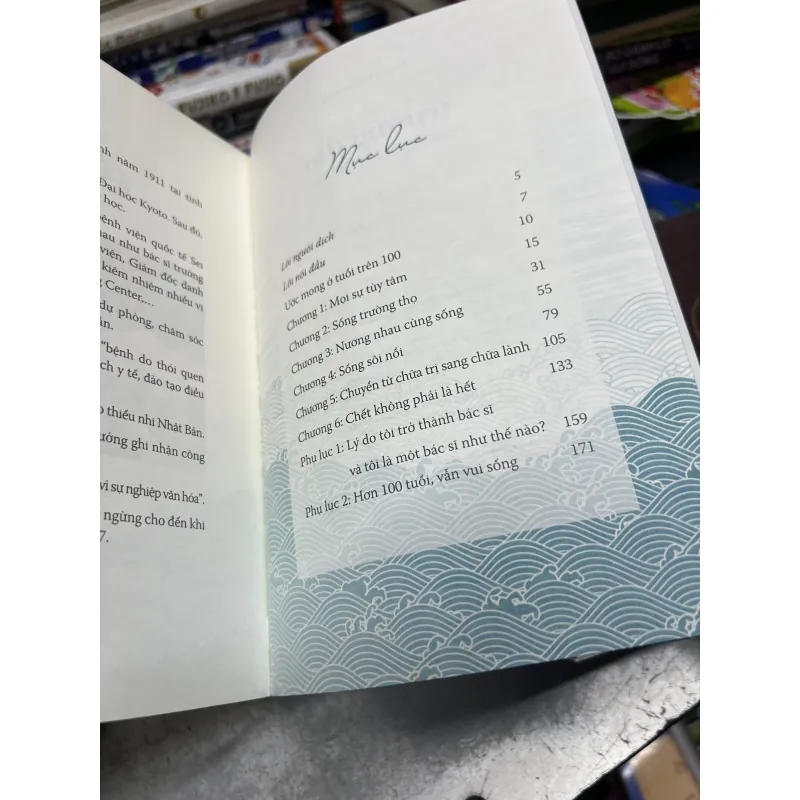 nh năm 1911 tại tỉnh
Đại học Kyoto. Sau đó,
học.
bệnh viện quốc tế Sei
hau như bác sĩ trưởng
viên, Giám đốc danh
kiêm nhiệm nhiều vị
g Center,...
dự phòng, chăm sóc
ản.
“bệnh do thói quen
ch y tế, đào tạo điều
o thiếu nhi Nhật Bản.
ưởng ghi nhận công
vì sự nghiệp văn hóa”.
ngừng cho đến khi
7.
Mục lục
Lời người dịch 5
Lời nói đầu 7
Ước mong ở tuổi trên 100 10
Chương 1: Mọi sự tùy tâm 15
Chương 2: Sống trường thọ 31
Chương 3: Nương nhau cùng sống 55
Chương 4: Sống sôi nổi 79
Chương 5: Chuyển từ chữa trị sang chữa lành 105
Chương 6: Chết không phải là hết 133
Phụ lục 1: Lý do tôi trở thành bác sĩ
và tôi là một bác sĩ như thế nào? 159
Phụ lục 2: Hơn 100 tuổi, vẫn vui sống 171
FUJIKO F FUJIO